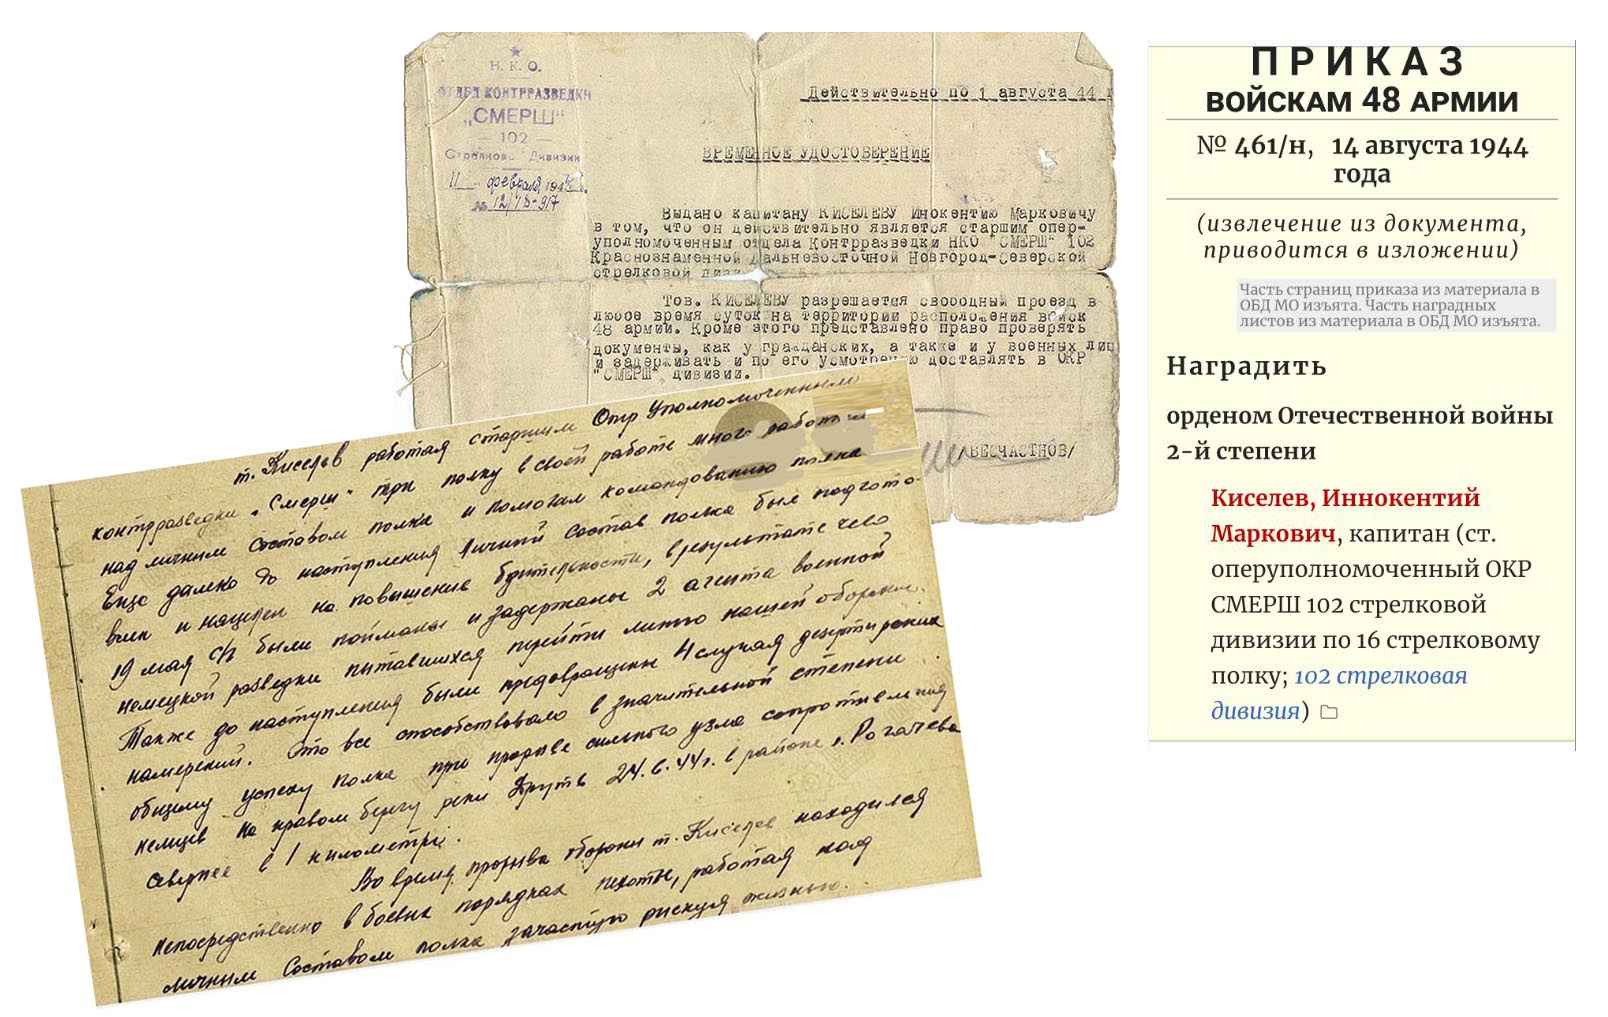 Н. К. О.
ОТДЕЛ КОНТРРАЗВЕДКИ
„СМЕРШ"
— 102 —
Стрелковой Дивизии
11 февраля 194
№ 12/18-917
Действительно по 1 августа 44 г
ВРЕМЕННОЕ УДОСТОВЕРЕНИЕ
Выдано капитану КИСЕЛЕВУ Инокентию Марковичу
в том, что он действительно является старшим опер-
уполномоченным отдела Контрразведки НКО "СМЕРШ" 102
Краснознаменной Дальневосточной Новгород-Северской
стрелковой диви
Тов. КИСЕЛЕВУ разрешается свободный проезд в
любое время суток на территории расположения войск
48 армии. Кроме этого представлено право проверять
документы, как у гражданских, а также и у военных лиц
и задерживать и по его усмотрению доставлять в ОКР
"СМЕРШ" дивизии.
/БЕСЧАСТНОВ/
т. Киселев работая старшим Опер Уполномоченным
контрразведки „Смерш" при полку в своей работе много работал
над личным составом полка и помогал командованию полка
Еще далеко до наступления личный состав полка был подгото-
влен и нацелен на повышение бдительности, в результате чего
19 мая с/г были пойманы и задержаны 2 агента военной
немецкой разведки пытавшихся перейти линию нашей обороны.
Также до наступления были предотвращены 4 случая дезертирских
намерений. Это все способствовало в значительной степени
общему успеху полка при прорыве сильного узла сопротивления
немцев на правом берегу реки Друть 24.6.44г. в районе г. Рогачева
севернее в 1 километре.
Во время прорыва обороны т. Киселев находился
непосредственно в боевых порядках пехоты, работая над
личным составом полка зачастую рискуя жизнью.
ПРИКАЗ
ВОЙСКАМ 48 АРМИИ
№ 461/н, 14 августа 1944
года
(извлечение из документа,
приводится в изложении)
Часть страниц приказа из материала в
ОБД МО изъята. Часть наградных
листов из материала в ОБД МО изъята.
Наградить
орденом Отечественной войны
2-й степени
Киселев, Иннокентий
Маркович, капитан (ст.
оперуполномоченный ОКР
СМЕРШ 102 стрелковой
дивизии по 16 стрелковому
полку; 102 стрелковая
дивизия)